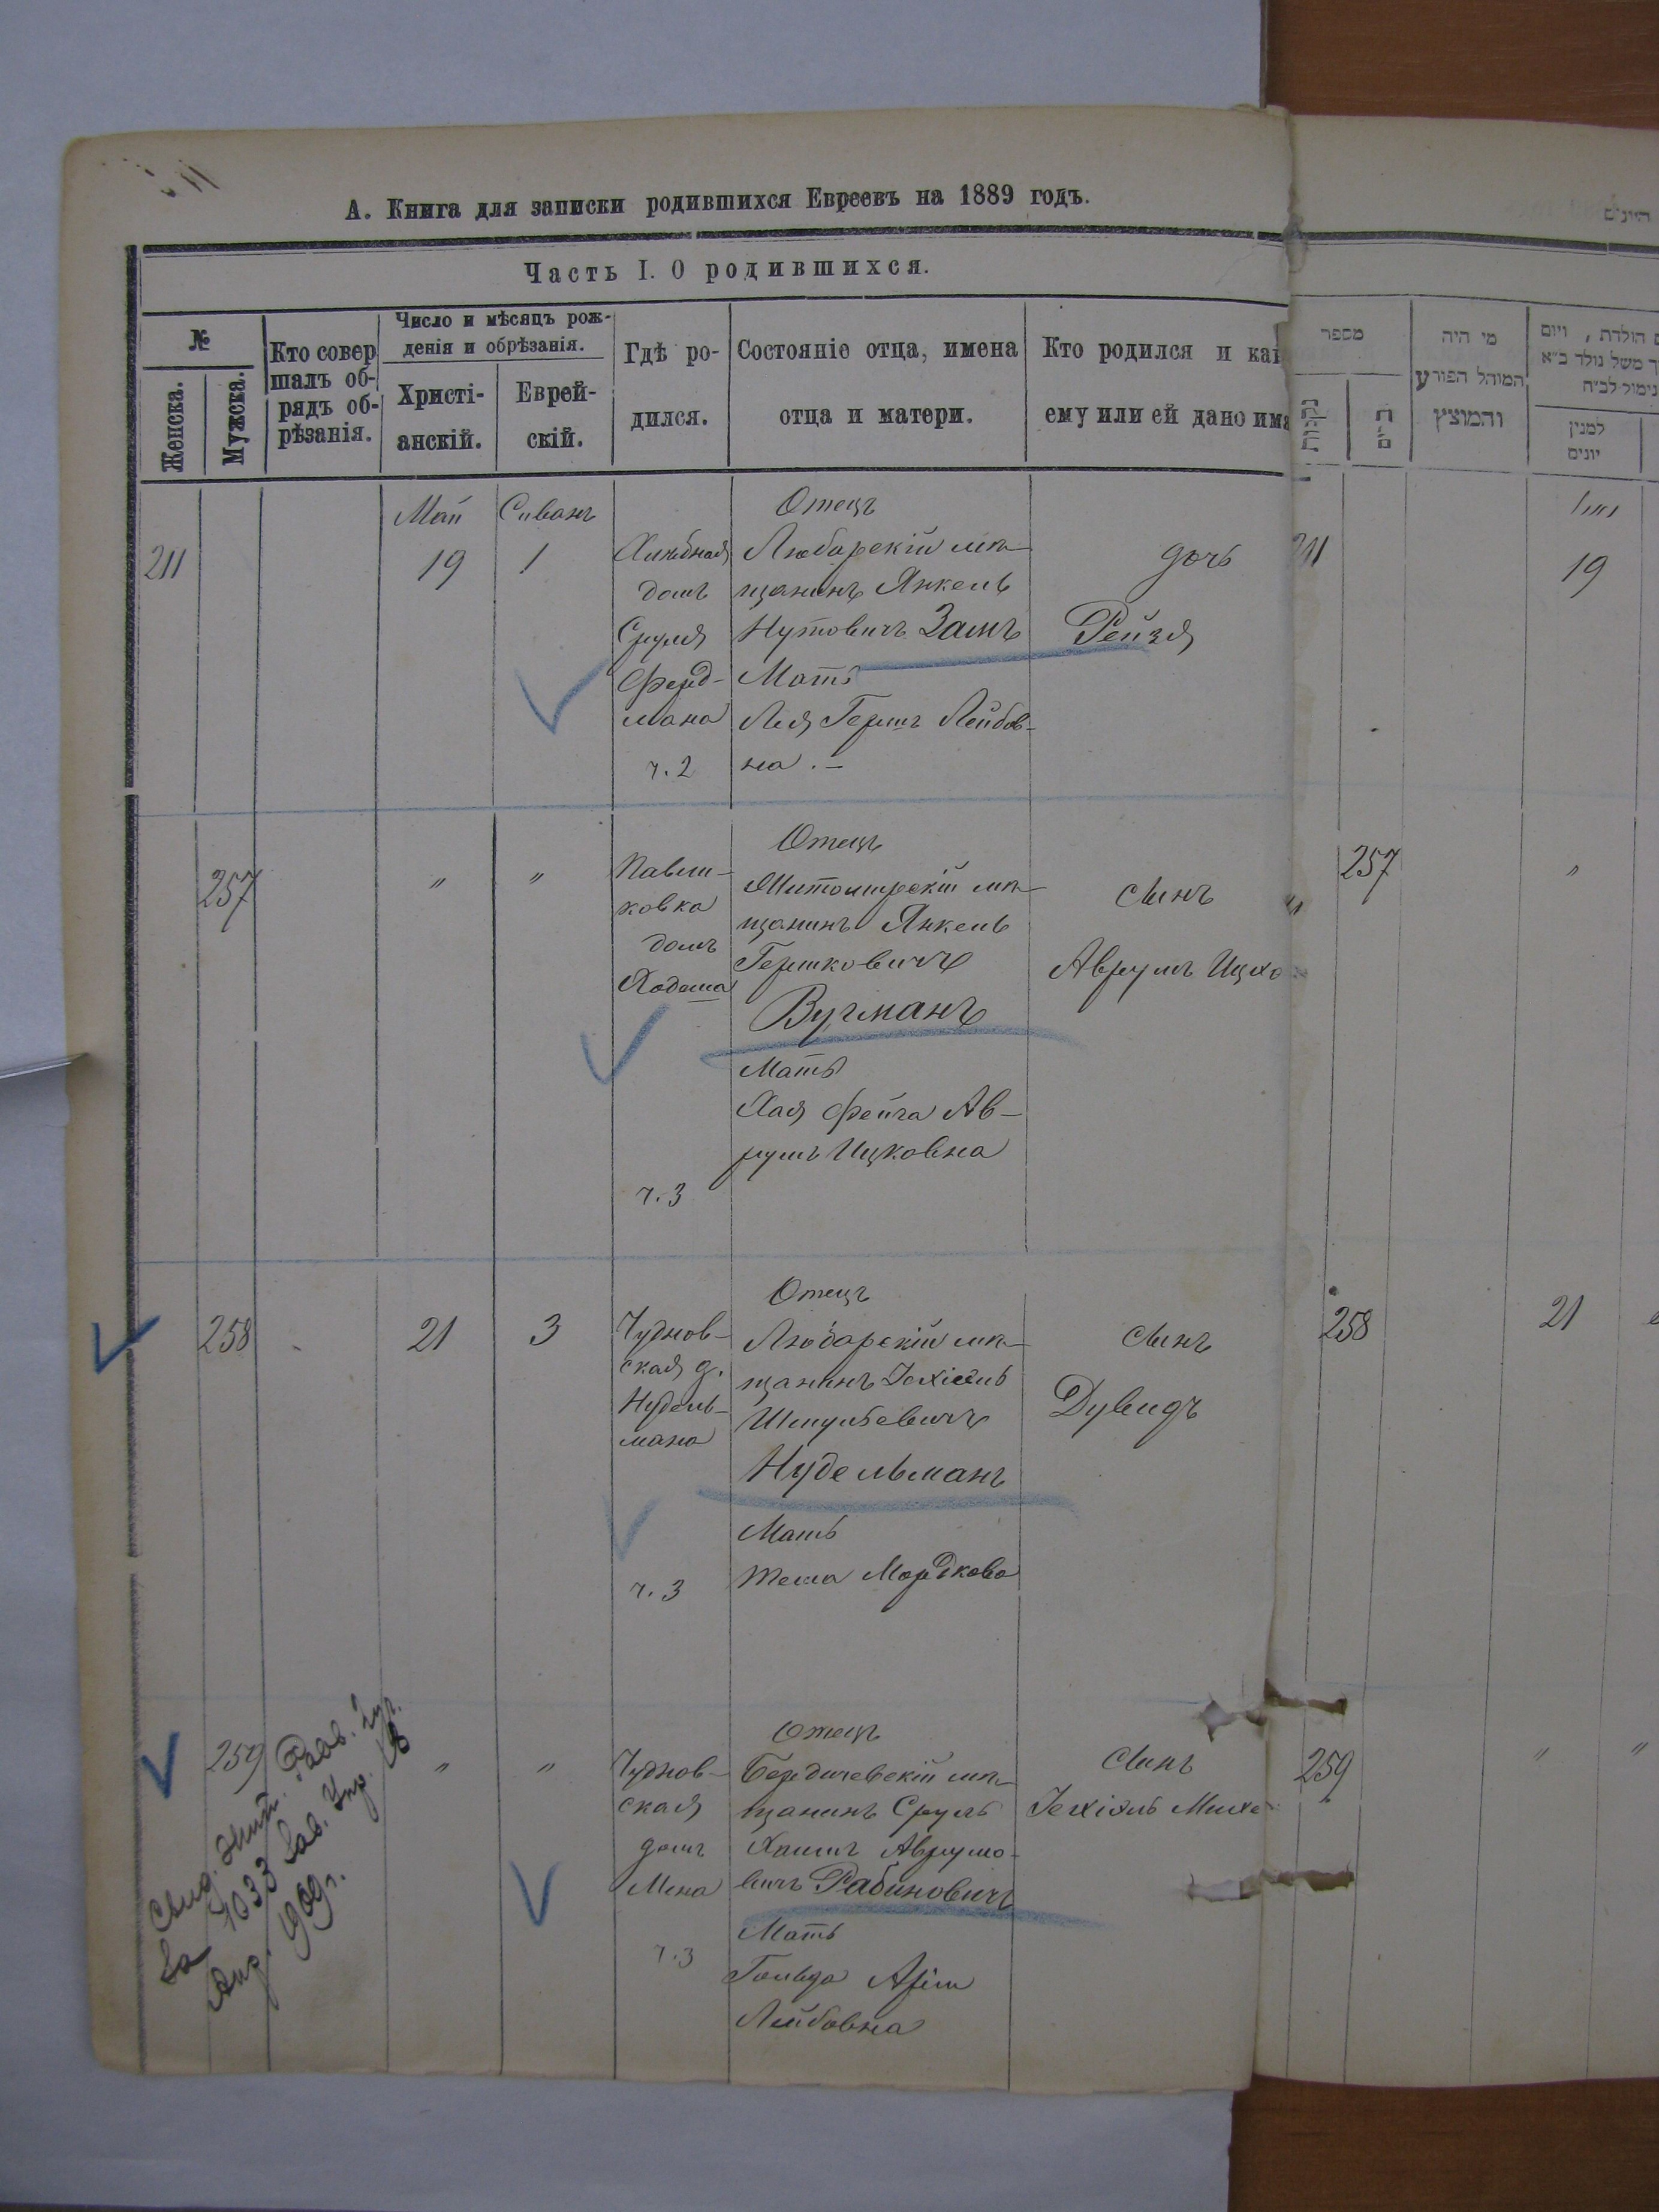 А. Книга для записки родившихся Евреевъ на 1889 годъ.
Часть I. О родившихся.
№
Женска.
Мужска.
Кто совер
шалъ об-
рядъ об-
рѣзанія.
Число и мѣсяцъ рож-
денія и обрѣзанія.
Христі-
анскій.
Еврей-
скій.
Гдѣ ро-
дился.
Состояніе отца, имена
отца и матери.
Кто родился и как
ему или ей дано има
211
Май
19
Сиванъ
1
домъ
Сруля
Фред-
мана
ч. 2
Отецъ
Любарскій мѣ-
щанинъ Янкель
Нутовичъ Замъ
Мать
Лея Гершъ Лейбов-
на . –
дочь
Рейзя
257
"
"
Павли-
ковка
домъ
Ходоша
ч. 3
Отецъ
Житомирскій мѣ-
щанинъ Янкель
Гершковичъ
Вугманъ
Мать
Хая Фейга Ав-
румъ Ицковна
сынъ
Аврумъ Ицхо
258
21
3
Чуднов-
ская д.
Нудель-
мана
ч. 3
Отецъ
Любарскій мѣ-
щанинъ Іехіель
Шмульевичъ
Нудельманъ
Мать
Мордкова
сынъ
Дувидъ
259
"
"
Чуднов-
ская
домъ
Мена
ч. 3
Отецъ
Бердичевскій мѣ-
щанинъ Сруль
Хаимъ Аврумо-
вичъ Рабиновичъ
Мать
Гольда Арім
Лейбовна
сынъ
Іехіэль Михе
Свид. Жит. Рав.
За 1033 Зав. Упр.
1909 г.
היונים
מספר
מי היה
המוהל הפורע
והמוצץ
הולדת , ויום
משל נולד ב״א
נימול לב״ח
למנין
יונים
211
19
257
"
258
21
259
"
"